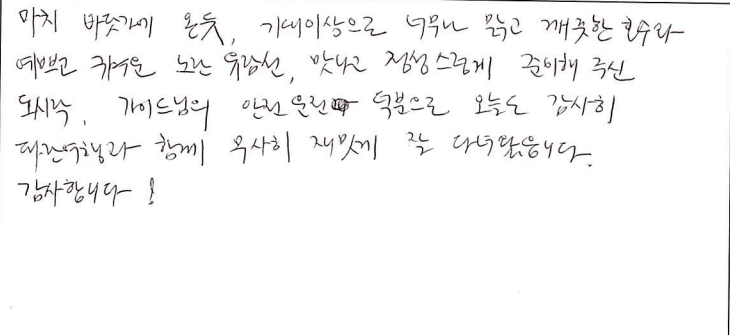 마치 바닷가에 온듯, 기대이상으로 너무나 맑고 깨끗한 호수와
예쁘고 귀여운 노란 유람선, 맛나고 정성스럽게 준비해 주신
도시락, 가이드님의 안전운전 덕분으로 오늘도 감사히
파란여행과 함께 무사히 재밌게 잘 다녀왔읍니다.
감사합니다!